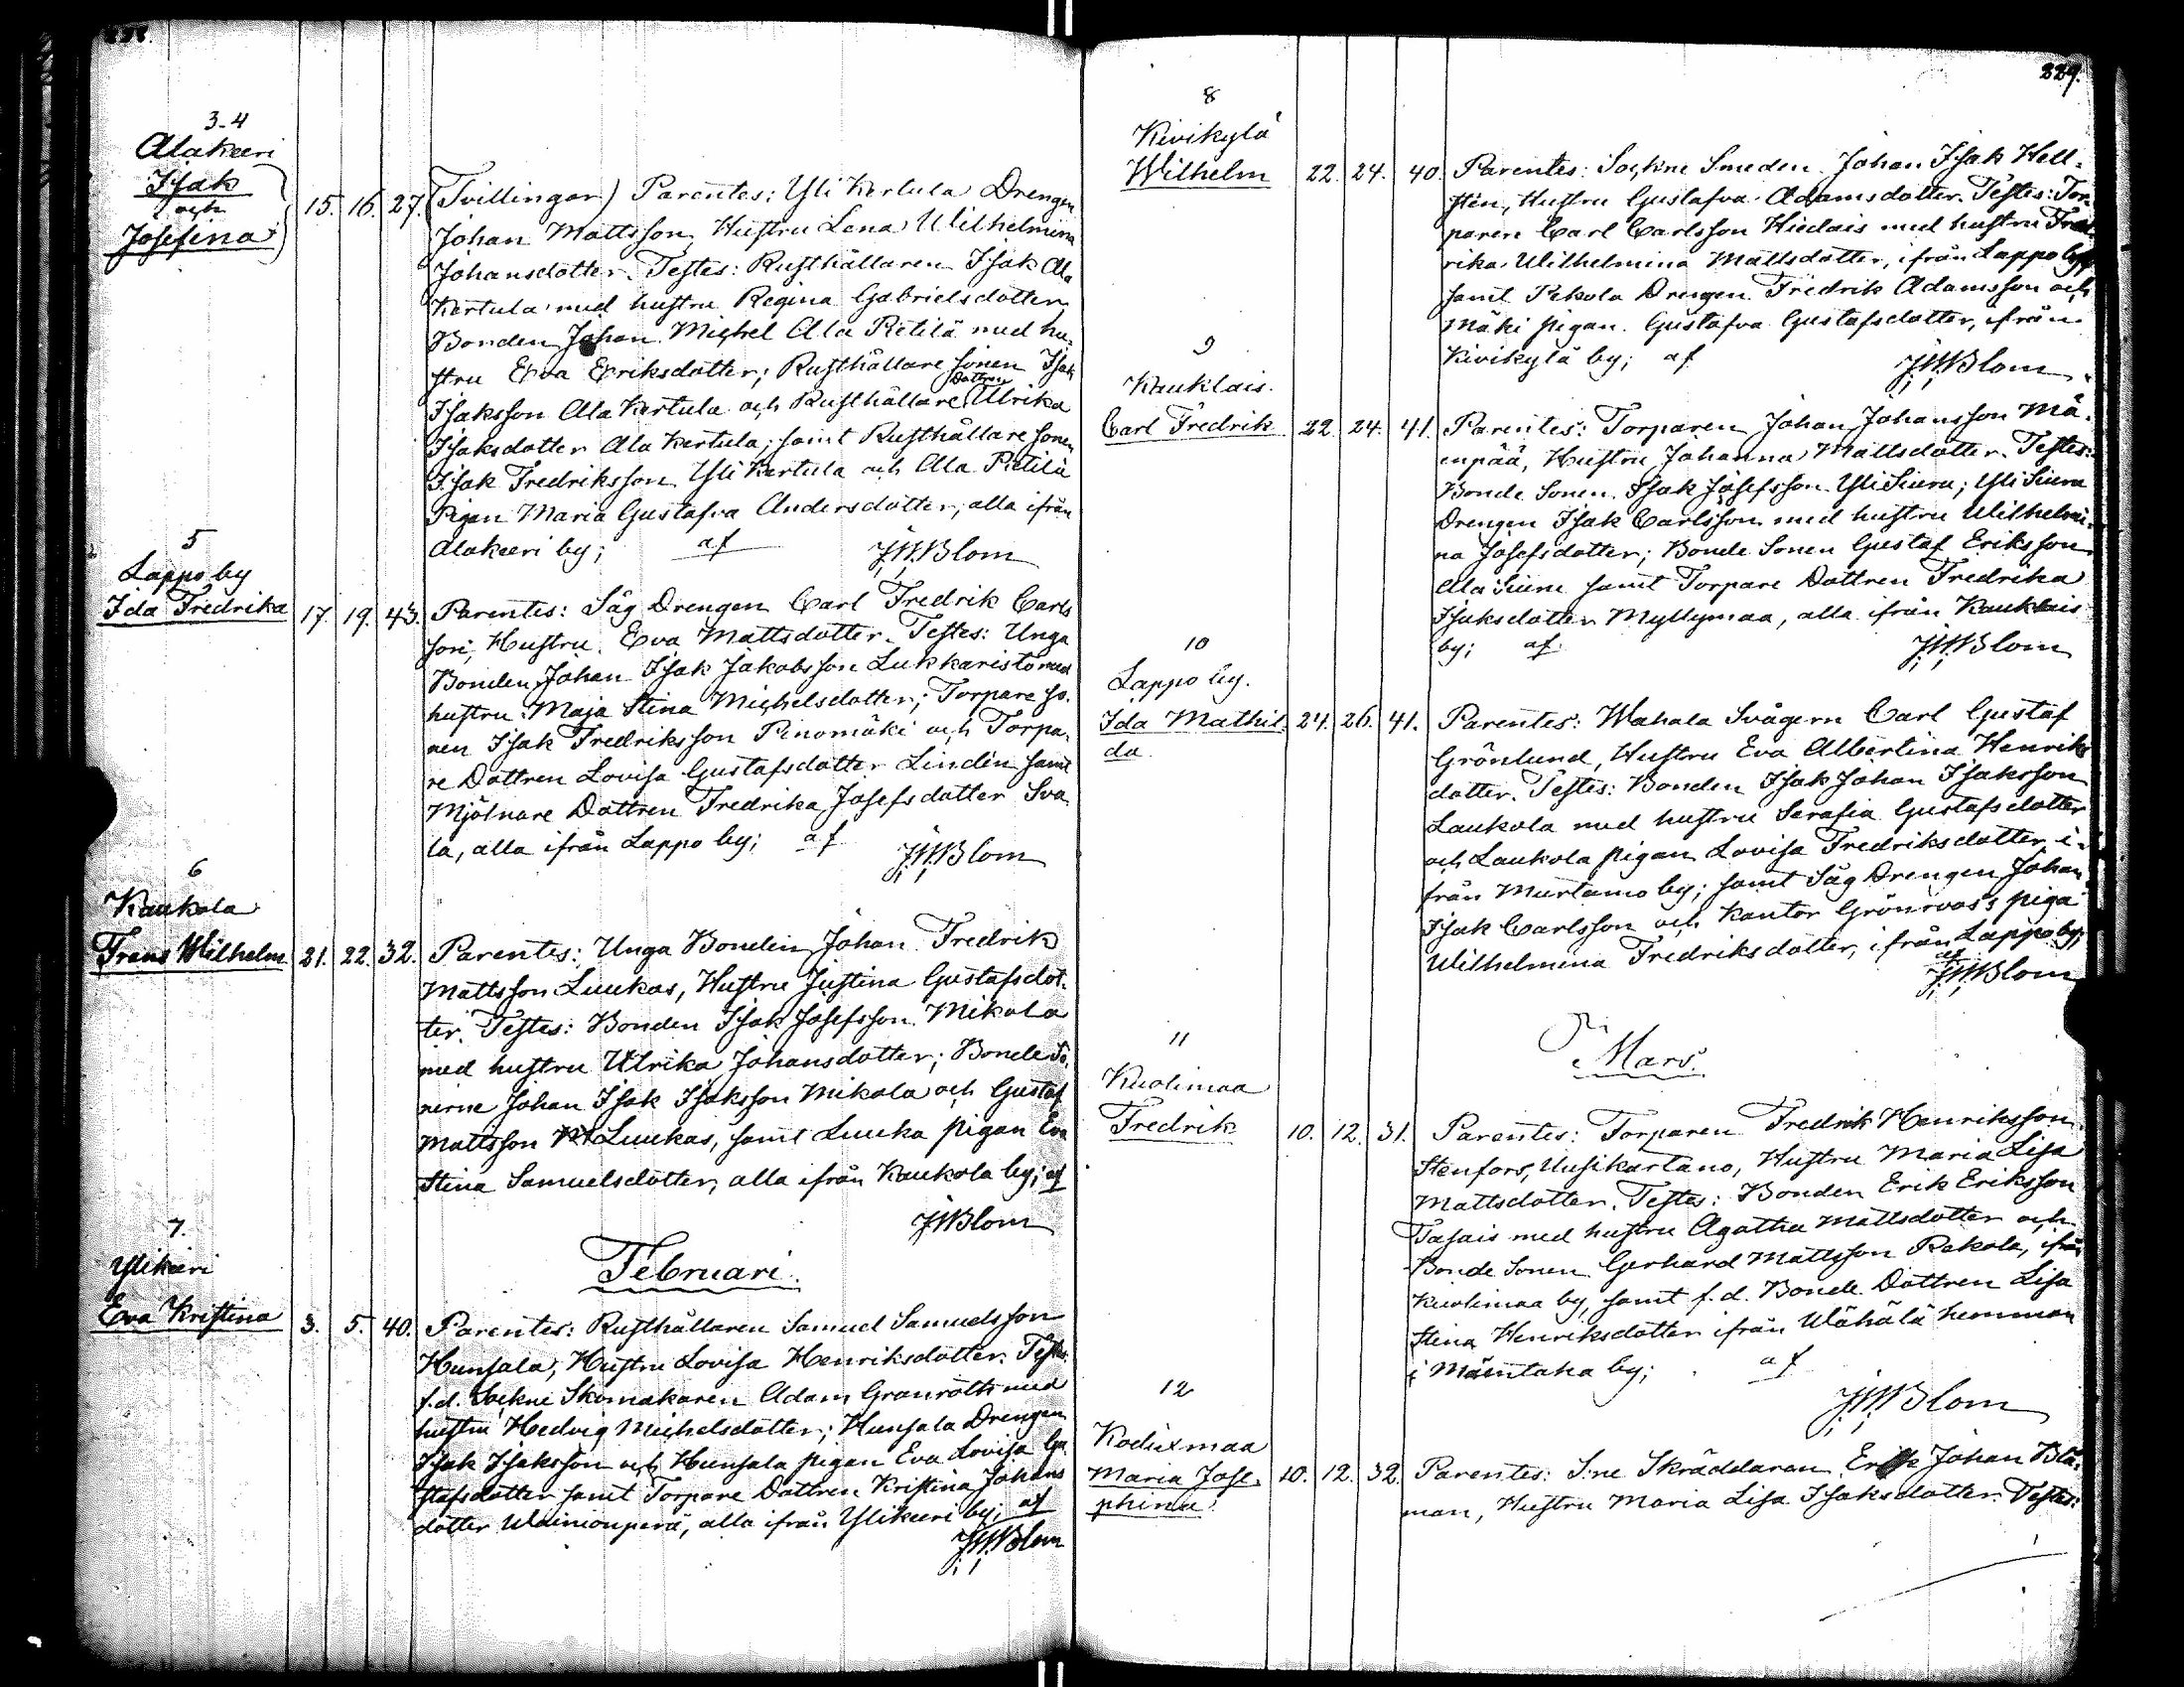 3-4
Alakeeri
Isak
och
Josefina
15. 16. 27. (Tvillingar) Parentes: Yli Kertula Drengen
Johan Mattsson, Hustru Lena Wilhelmina
Johansdotter. Testes: Rusthållaren Isak Ala
Kertula med hustru Regina Gabrielsdotter,
Bonden Johan Michel Ala Pietilä med hu-
stru Eva Eriksdotter; Rusthållare sonen Isak
Isaksson Ala Kertula och Rusthållare Dottren Ulrika
Isaksdotter Ala Kertula; samt Rusthållare sonen
Isak Fredriksson Yli Kertula och Ala Pietilä
Pigan Maria Gustafva Andersdotter, alla ifrån
Alakeeri by; af J.W.Blom
5
Lappo by
Ida Fredrika 17. 19. 43. Parentes: Såg Drengen Carl Fredrik Carls
son, Hustru Eva Mattsdotter. Testes: Unga
Bonden Johan Isak Jakobsson Lukkaristo med
hustru Maja Stina Michelsdotter; Torpare so-
nen Isak Fredriksson Pinomäki och Torpa-
re Dottren Lovisa Gustafsdotter Lindén samt
Mjölnare Dottren Fredrika Josefsdotter Sva
la, alla ifrån Lappo by; af J.W.Blom
6
Kaukola
Frans Wilhelm 21. 22. 32. Parentes: Unga Bonden Johan Fredrik
Mattsson Luukas, Hustru Justina Gustafsdot-
ter. Testes: Bonden Isak Josefsson Mikola
med hustru Ulrika Johansdotter; Bonde Sö-
nerne Johan Isak Isaksson Mikola och Gustaf
Mattsson Luukas, samt Luuka pigan Eva
Stina Samuelsdotter, alla ifrån Kaukola by; af
J.W.Blom
Februari.
7.
Ylikeeri
Eva Kristina 3. 5. 40. Parentes: Rusthållaren Samuel Samuelsson
Hunsala, Hustru Lovisa Henriksdotter. Testes:
f.d. Sockne Skomakaren Adam Granroth med
hustru Hedvig Michelsdotter; Hunsala Drengen
Isak Isaksson och Hunsala pigan Eva Lovisa Gu
stafsdotter samt Torpare Dottren Kristina Johans
dotter Wainionperä, alla ifrån Ylikeeri by; af
J.W.Blom
229.
8
Kivikylä
Wilhelm 22. 24. 40. Parentes: Sockne Smeden Johan Isak Hell-
stén, Hustru Gustafva Adamsdotter. Testes: Tor
paren Carl Carlsson Hiedais med hustru Fred
rika Wilhelmina Mattsdotter, ifrån Lappo by
samt Pekola Drengen Fredrik Adamsson och
Mäki pigan Gustafva Gustafsdotter, ifrån
Kivikylä by; af J.W.Blom
9
Kauklais.
Carl Fredrik 22. 24. 41. Parentes: Torparen Johan Johansson Mä-
enpää, Hustru Johanna Mattsdotter. Testes:
Bonde Sonen Isak Josefsson Yli Siuru; Yli Siuru
Drengen Isak Carlsson med hustru Wilhelmi-
na Josefsdotter; Bonde Sonen Gustaf Eriksson
Ala Siuru samt Torpare Dottren Fredrika
Isaksdotter Myllymaa, alla ifrån Kauklais
by; af J.W.Blom
10
Lappo by.
Ida Mathil- 24. 26. 41. Parentes: Wahala Svågern Carl Gustaf
da
Grönlund, Hustru Eva Albertina Henriks
dotter. Testes: Bonden Isak Johan Isaksson
Laukola med hustru Serafia Gustafsdotter
och Laukola pigan Lovisa Fredriksdotter, i-
från Murtamo by; samt Såg Drengen Johan
Isak Carlsson och Kantor Grönroos's piga
Wilhelmina Fredriksdotter, ifrån Lappo by;
af J.W.Blom
Mars.
11
Kuolimaa
Fredrik 10. 12. 31. Parentes: Torparen Fredrik Henriksson
Stenfors, Uusikartano, Hustru Maria Lisa
Mattsdotter. Testes: Bonden Erik Eriksson
Tasais med hustru Agatha Mattsdotter och
Bonde Sonen Gerhard Mattsson Rekola, ifrån
Kuolimaa by, samt f.d. Bonde Dottren Lisa
Stina Henriksdotter ifrån Wähälä hemman
i Mäentaka by; af
J.W.Blom
12
Kodixmaa
Maria Jose- 10. 12. 32. Parentes: S:ne Skräddaren Erik Johan Blå-
phina
man, Hustru Maria Lisa Isaksdotter. Testes: